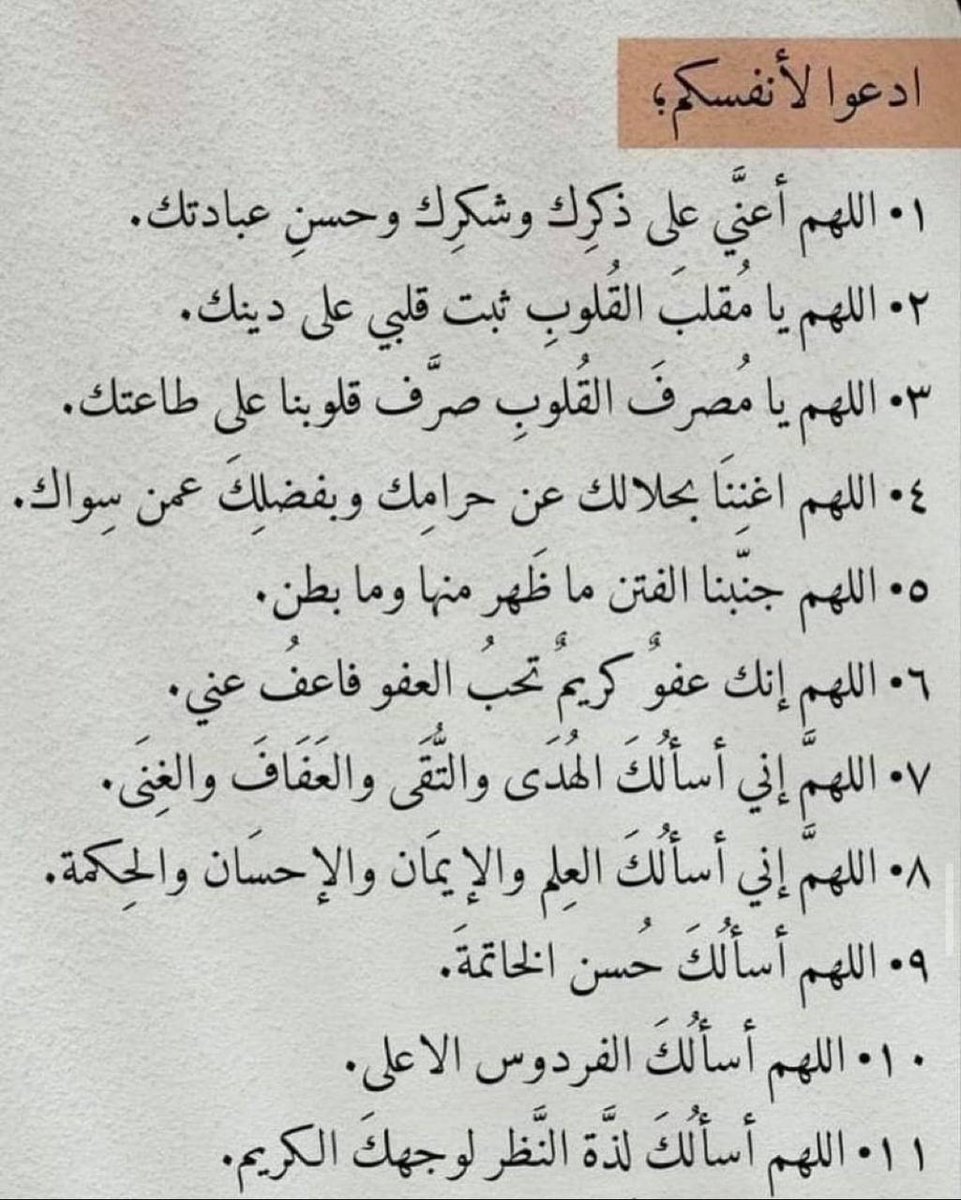 ادعوا لأنفسكم؛
١• اللهم أعنَّي على ذكرِك وشكرِك وحسنِ عبادتك.
٢• اللهم يا مُقلبَ القُلوبِ ثبت قلبي على دينك.
٣• اللهم يا مُصرفَ القُلوبِ صرَّف قلوبنا على طاعتك.
٤• اللهم اغنِنَا بحلالك عن حرامِك وبفضلِكَ عمن سِواك.
٥• اللهم جنّبنا الفتن ما ظَهر منها وما بطن.
٦• اللهم إنك عفوٌ كريمٌ تحبُ العفو فاعفُ عني.
٧• اللهمَّ إني أسألُكَ الهُدَى والتُّقَى والعَفَافَ والغِنَى.
٨• اللهمَّ إني أسألُكَ العِلم والإيمَان والإحسَان والحِكمة.
٩• اللهم أسألُكَ حُسن الخاتمةَ.
١٠• اللهم أسألُكَ الفردوس الاعلى.
١١• اللهم أسألُكَ لذَّة النَّظر لوجهكَ الكريم.